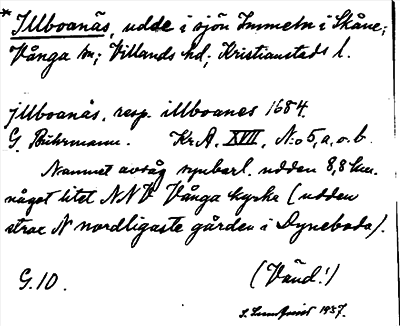 * Illboanäs, udde i sjön Immeln i Skåne;
Vånga sn; Villands hd; Kristianstads l.
jllboanäs, resp. illboanes 1684.
G. Buhrmann. Kr.A. XVII, N:o 5, a, o. b.
Namnet avsåg synbarl. udden 8,8 km.
något litet NNV Vånga kyrka (udden
strax N nordligaste gården i Dyneboda).
G. 10. (Vänd!)
1937.